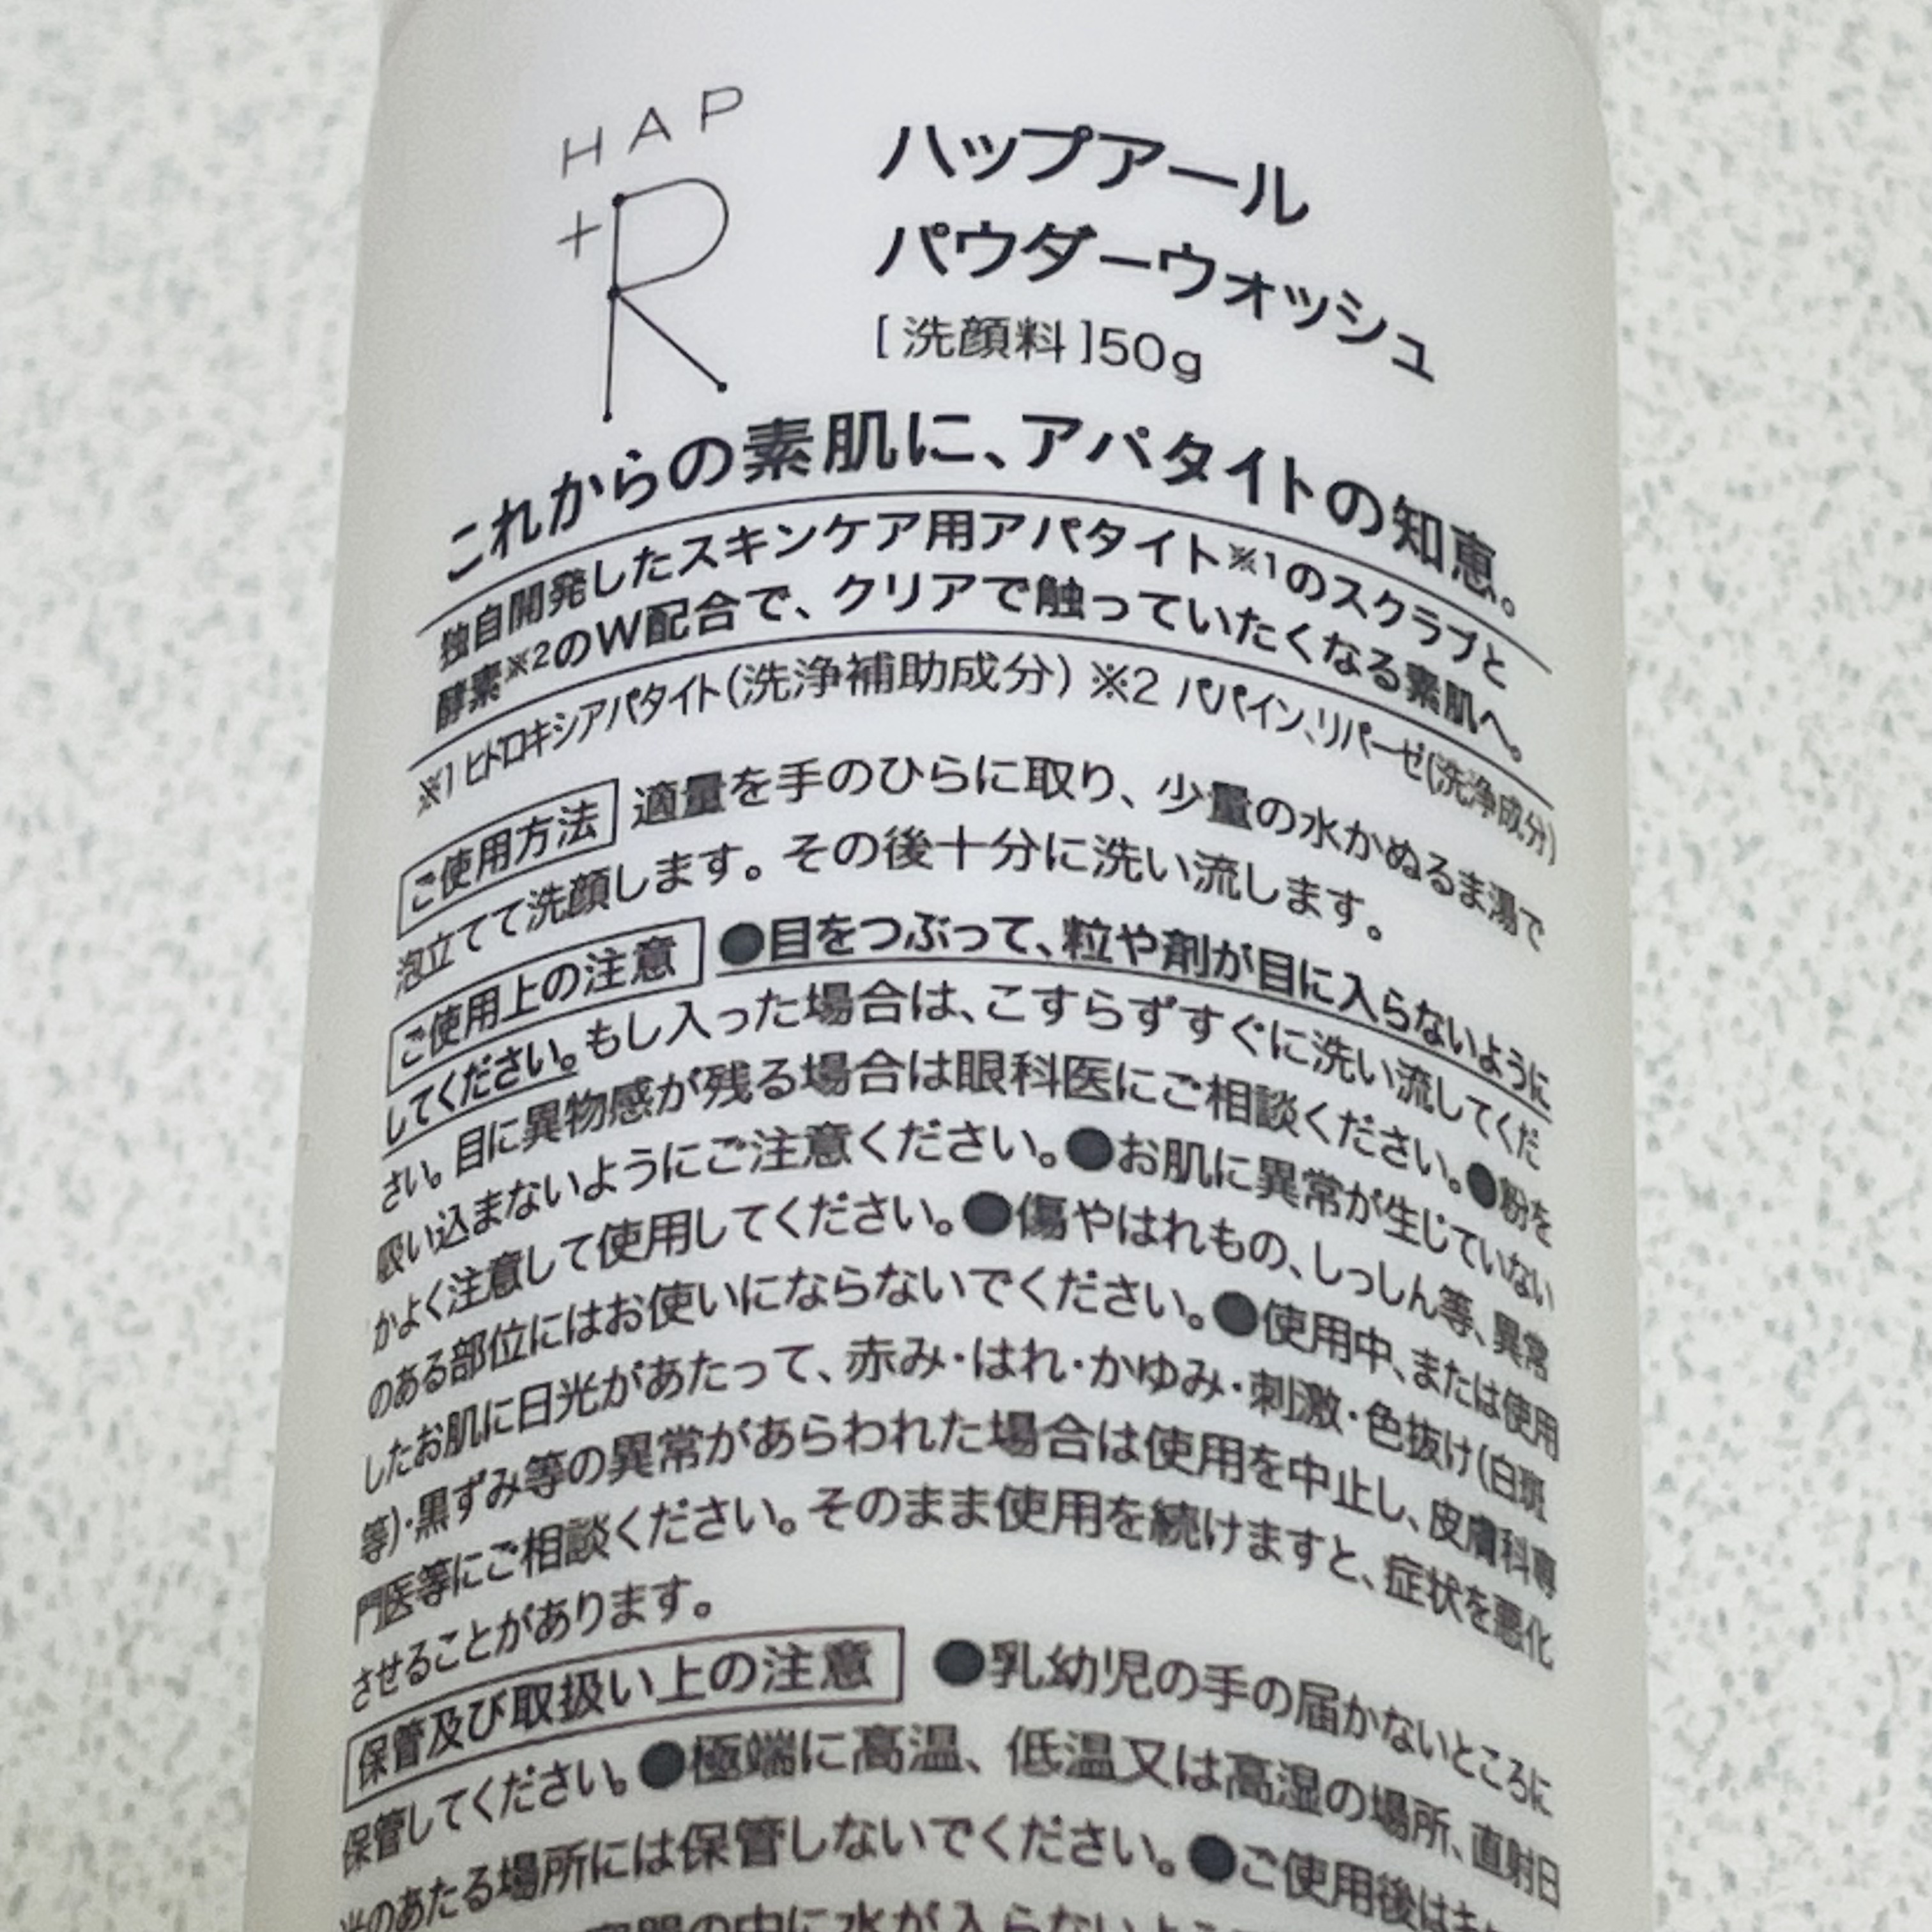 HAP
+R
ハップアール
パウダーウォッシュ
[洗顔料]50g
これからの素肌に、アパタイトの知恵。
独自開発したスキンケア用アパタイト※1のスクラブと
酵素※2のW配合で、クリアで触っていたくなる素肌へ。
※1 ヒドロキシアパタイト(洗浄補助成分) ※2 パパイン、リパーゼ(洗浄成分)
ご使用方法 適量を手のひらに取り、少量の水かぬるま湯で
泡立てて洗顔します。その後十分に洗い流します。
ご使用上の注意 ●目をつぶって、粒や剤が目に入らないように
してください。もし入った場合は、こすらずすぐに洗い流してくだ
さい。目に異物感が残る場合は眼科医にご相談ください。●粉を
吸い込まないようにご注意ください。●お肌に異常が生じていない
かよく注意して使用してください。●傷やはれもの、しっしん等、異常
のある部位にはお使いにならないでください。●使用中、または使用
したお肌に日光があたって、赤み・はれ・かゆみ・刺激・色抜け(白斑
等)・黒ずみ等の異常があらわれた場合は使用を中止し、皮膚科専
門医等にご相談ください。そのまま使用を続けますと、症状を悪化
させることがあります。
保管及び取扱い上の注意 ●乳幼児の手の届かないところに
保管してください。●極端に高温、低温又は高湿の場所、直射日
光のあたる場所には保管しないでください。●ご使用後は
の中に水が入らないよう